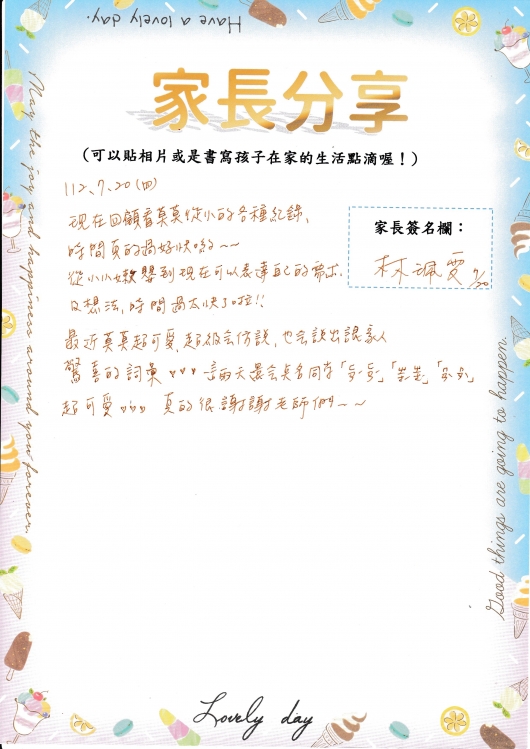 Have a lovely day.
家長分享
(可以貼相片或是書寫孩子在家的生活點滴喔！)
112、7、20 (四)
現在回顧看莫莫從小的各種紀錄、
時間真的過好快喲~~
從小小嫩嬰到現在可以表達自己的需求
及想法，時間過太快了啦!!
最近莫莫超可愛、超級會仿說，也會說出讓家人
驚喜的詞彙、、、這兩天還會點名同學
超可愛、、、 真的很謝謝老師們~~
家長簽名欄：
林珮雯 7/20
May the joy and happiness around you forever.
Good things are going to happen.
Lovely day